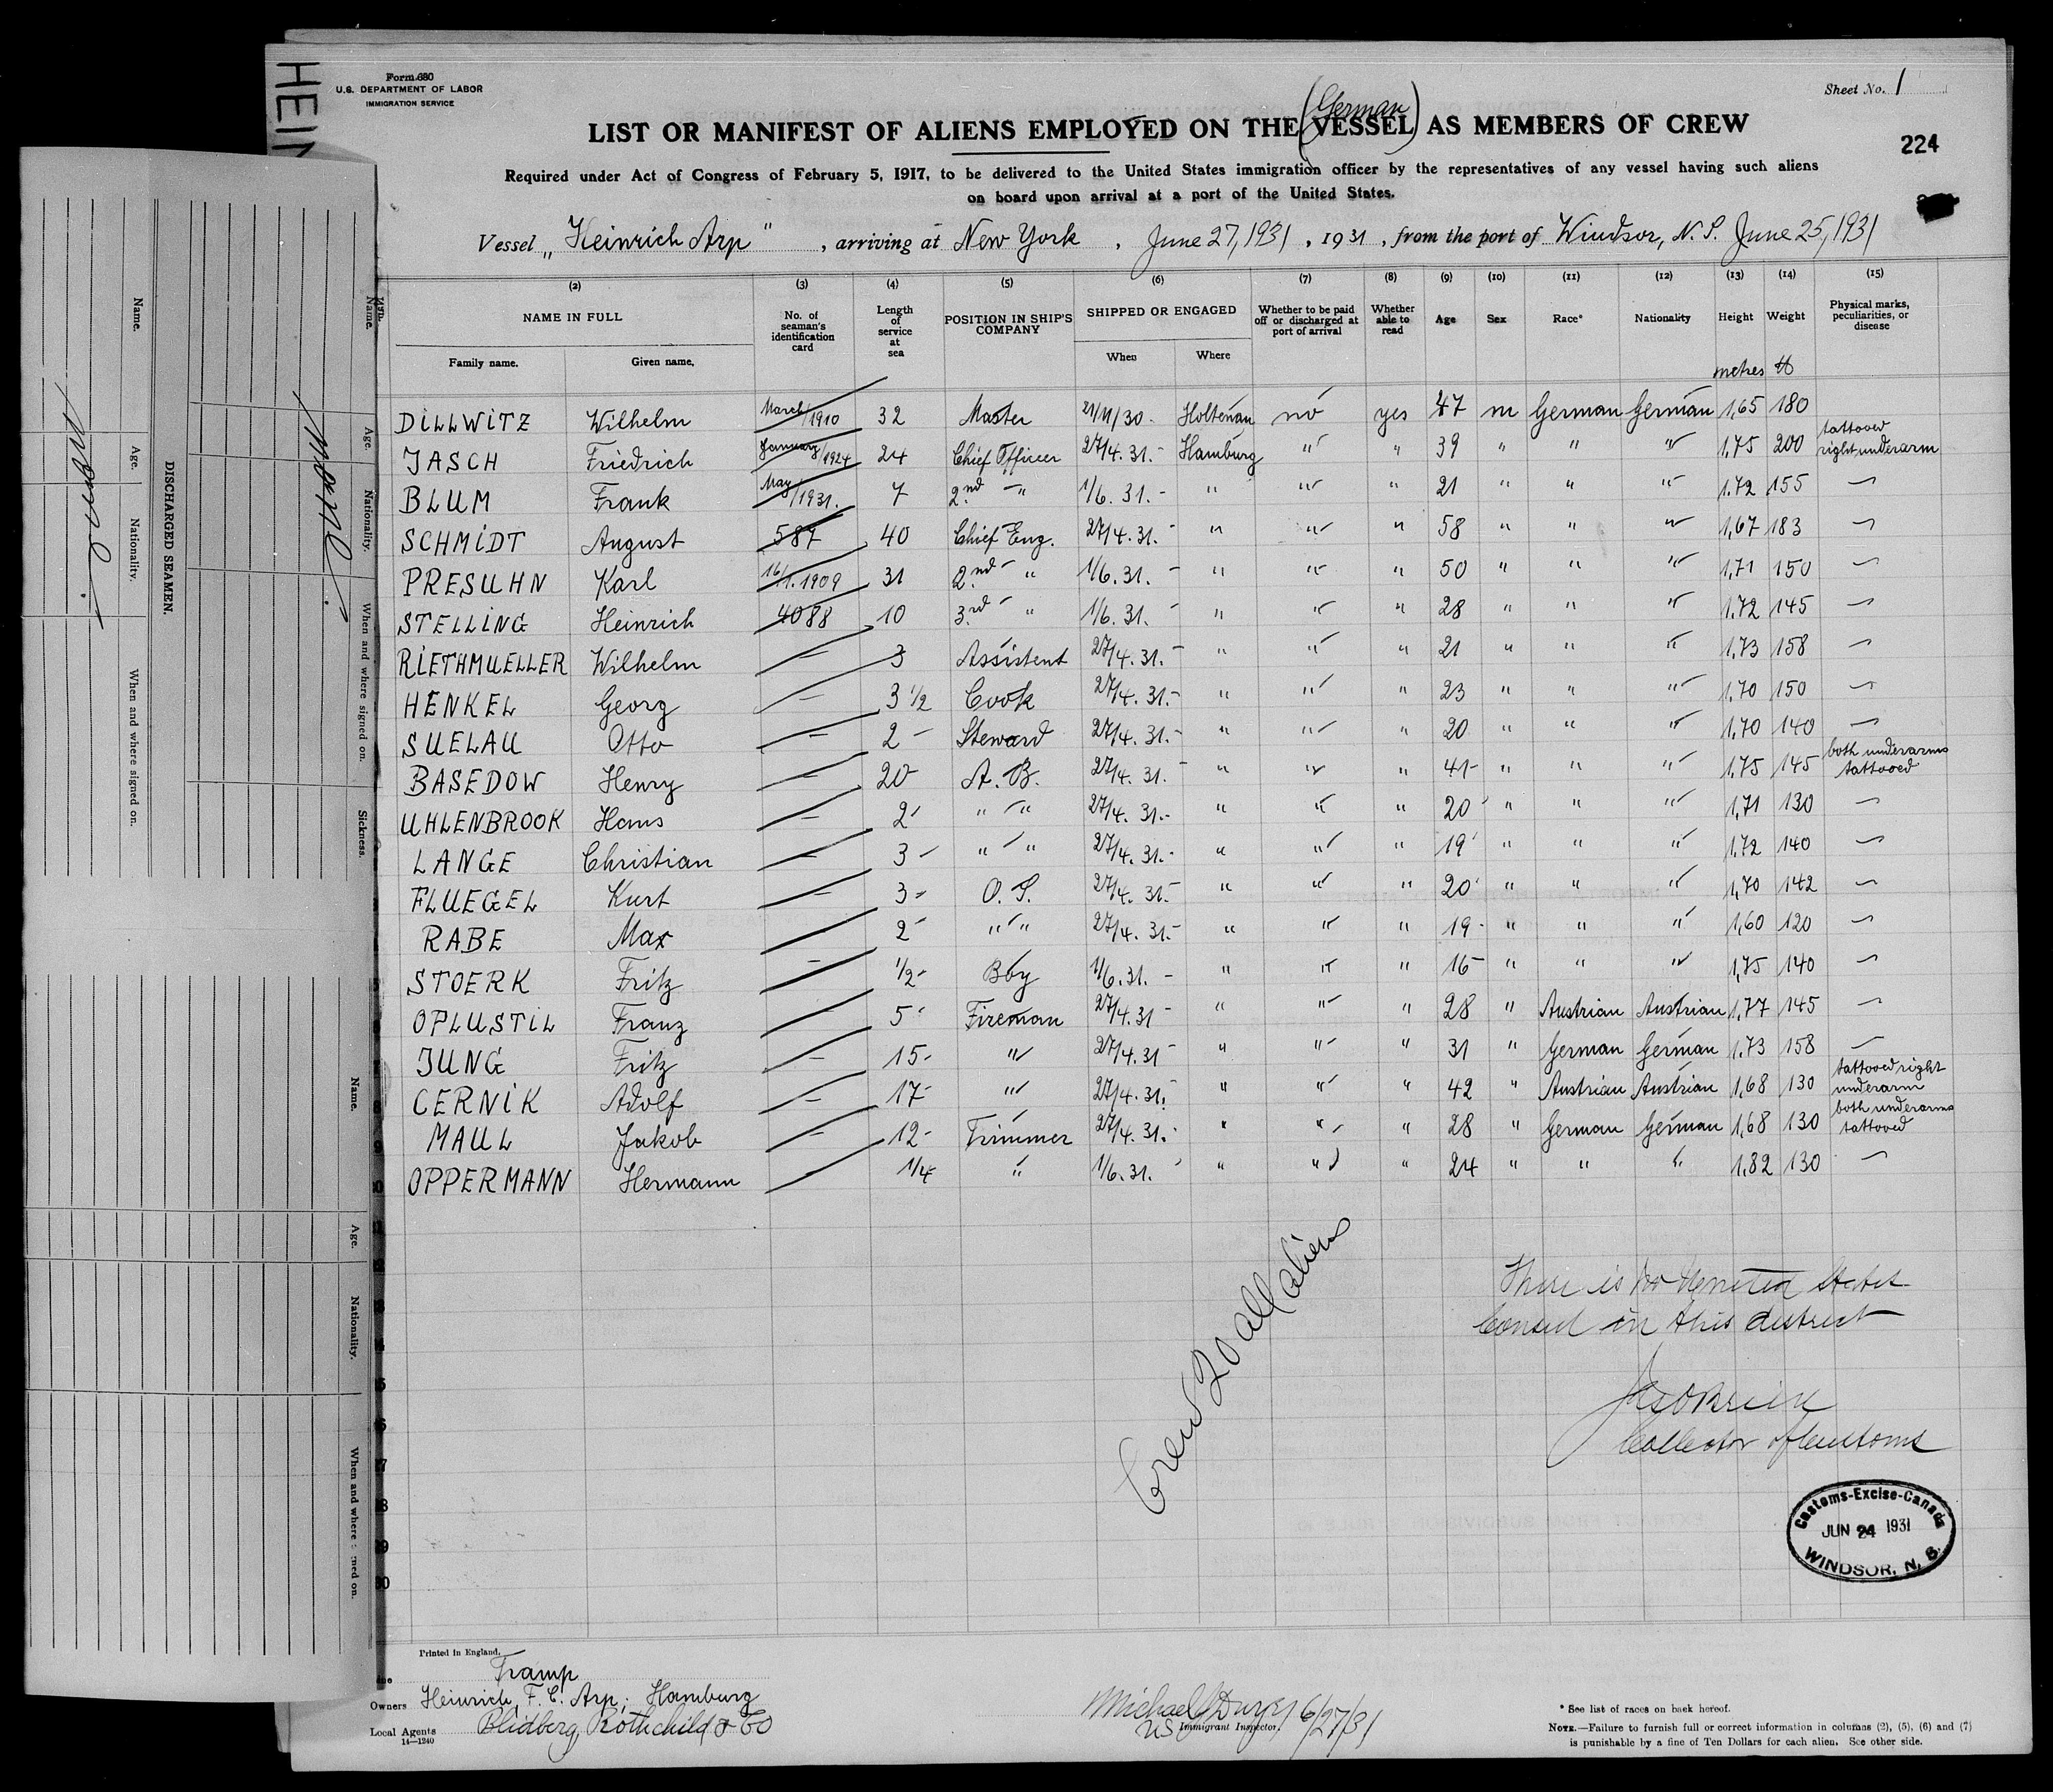 HEIN
Form 680
U.S. DEPARTMENT OF LABOR
IMMIGRATION SERVICE
Sheet No. 1
(German)
LIST OR MANIFEST OF ALIENS EMPLOYED ON THE VESSEL AS MEMBERS OF CREW
224
Required under Act of Congress of February 5, 1917, to be delivered to the United States immigration officer by the representatives of any vessel having such aliens
on board upon arrival at a port of the United States.
Vessel „Heinrich Arp", arriving at New York, June 27, 1931, 1931, from the port of Windsor, N.S. June 25, 1931
(2) (3) (4) (5) (6) (7) (8) (9) (10) (11) (12) (13) (14) (15)
NAME IN FULL No. of seaman's identification card Length of service at sea POSITION IN SHIP'S COMPANY SHIPPED OR ENGAGED Whether to be paid off or discharged at port of arrival Whether able to read Age Sex Race* Nationality Height Weight Physical marks, peculiarities, or disease
Family name. Given name. When Where metres ℔
DILLWITZ Wilhelm March/1910 32 Master 21/11/30. Holtenau no yes 47 m German German 1,65 180
JASCH Friedrich January/1924 24 Chief Officer 27/4.31.- Hamburg " " 39 " " " 1,75 200 tattooed right underarm
BLUM Frank May/1931. 7 2nd " 1/6.31.- " " " 21 " " " 1.72 155 —
SCHMIDT August 587 40 Chief Eng. 27/4.31. " " " 58 " " " 1,67 183 —
PRESUHN Karl 16/1.1909 31 2nd " 1/6.31. " " " 50 " " " 1,71 150 —
STELLING Heinrich 4088 10 3rd " 1/6.31. " " " 28 " " " 1.72 145 —
RIETHMUELLER Wilhelm — 3 Assistent 27/4.31. " " " 21 " " " 1,73 158 —
HENKEL Georg — 3 1/2 Cook 27/4.31.- " " " 23 " " " 1,70 150 —
SUELAU Otto — 2 Steward 27/4.31.- " " " 20 " " " 1,70 140 —
BASEDOW Henry — 20 A.B. 27/4.31. " " " 41 " " " 1,75 145 both underarms tattooed
UHLENBROOK Hans — 2 " " 27/4.31.- " " " 20 " " " 1,71 130 —
LANGE Christian — 3 " " 27/4.31.- " " " 19 " " " 1,72 140 —
FLUEGEL Kurt — 3 O.S. 27/4.31. " " " 20 " " " 1,70 142 —
RABE Max — 2 " " 27/4.31.- " " " 19 " " " 1,60 120 —
STOERK Fritz — 1/2 Boy 1/6.31. " " " 16 " " " 1,75 140 —
OPLUSTIL Franz — 5 Fireman 27/4.31 " " " 28 " Austrian Austrian 1,77 145 —
JUNG Fritz — 15 " 27/4.31 " " " 31 " German German 1.73 158 —
CERNIK Adolf — 17 " 27/4.31. " " " 42 " Austrian Austrian 1,68 130 tattooed right underarm
MAUL Jakob — 12 Trimmer 27/4.31. " " " 28 " German German 1,68 130 both underarms tattooed
OPPERMANN Hermann — 1/4 " 1/6.31. " " " 24 " " " 1.82 130 —
Crew 20 all aliens
There is no United States
Consul in this district
Collector of Customs
Customs-Excise-Canada
JUN 24 1931
WINDSOR, N. S.
Printed in England.
Tramp
Owners Heinrich F. C. Arp; Hamburg
Local Agents Blidberg, Rothchild & Co
14—1240
Michael J Dwyer 6/27/31
US Immigrant Inspector.
* See list of races on back hereof.
NOTE.—Failure to furnish full or correct information in columns (2), (5), (6) and (7)
is punishable by a fine of Ten Dollars for each alien. See other side.
DISCHARGED SEAMEN.
Name. Age. Nationality. When and where signed on.
Name. Age. Nationality. When and where signed on. Sickness.
Name. Age. Nationality. When and where signed on.